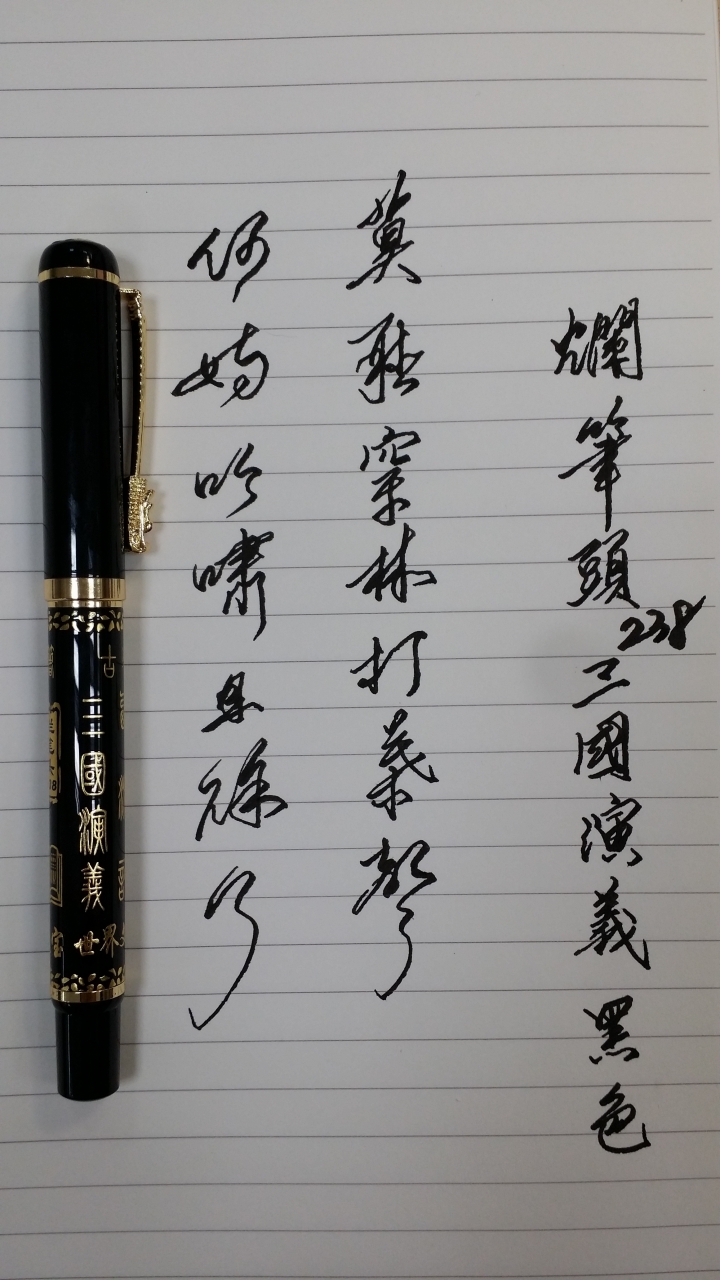 爛筆頭238三國演義黑色
莫聽穿林打葉聲
何妨吟嘯且徐行
古
三國演義
世界
宝